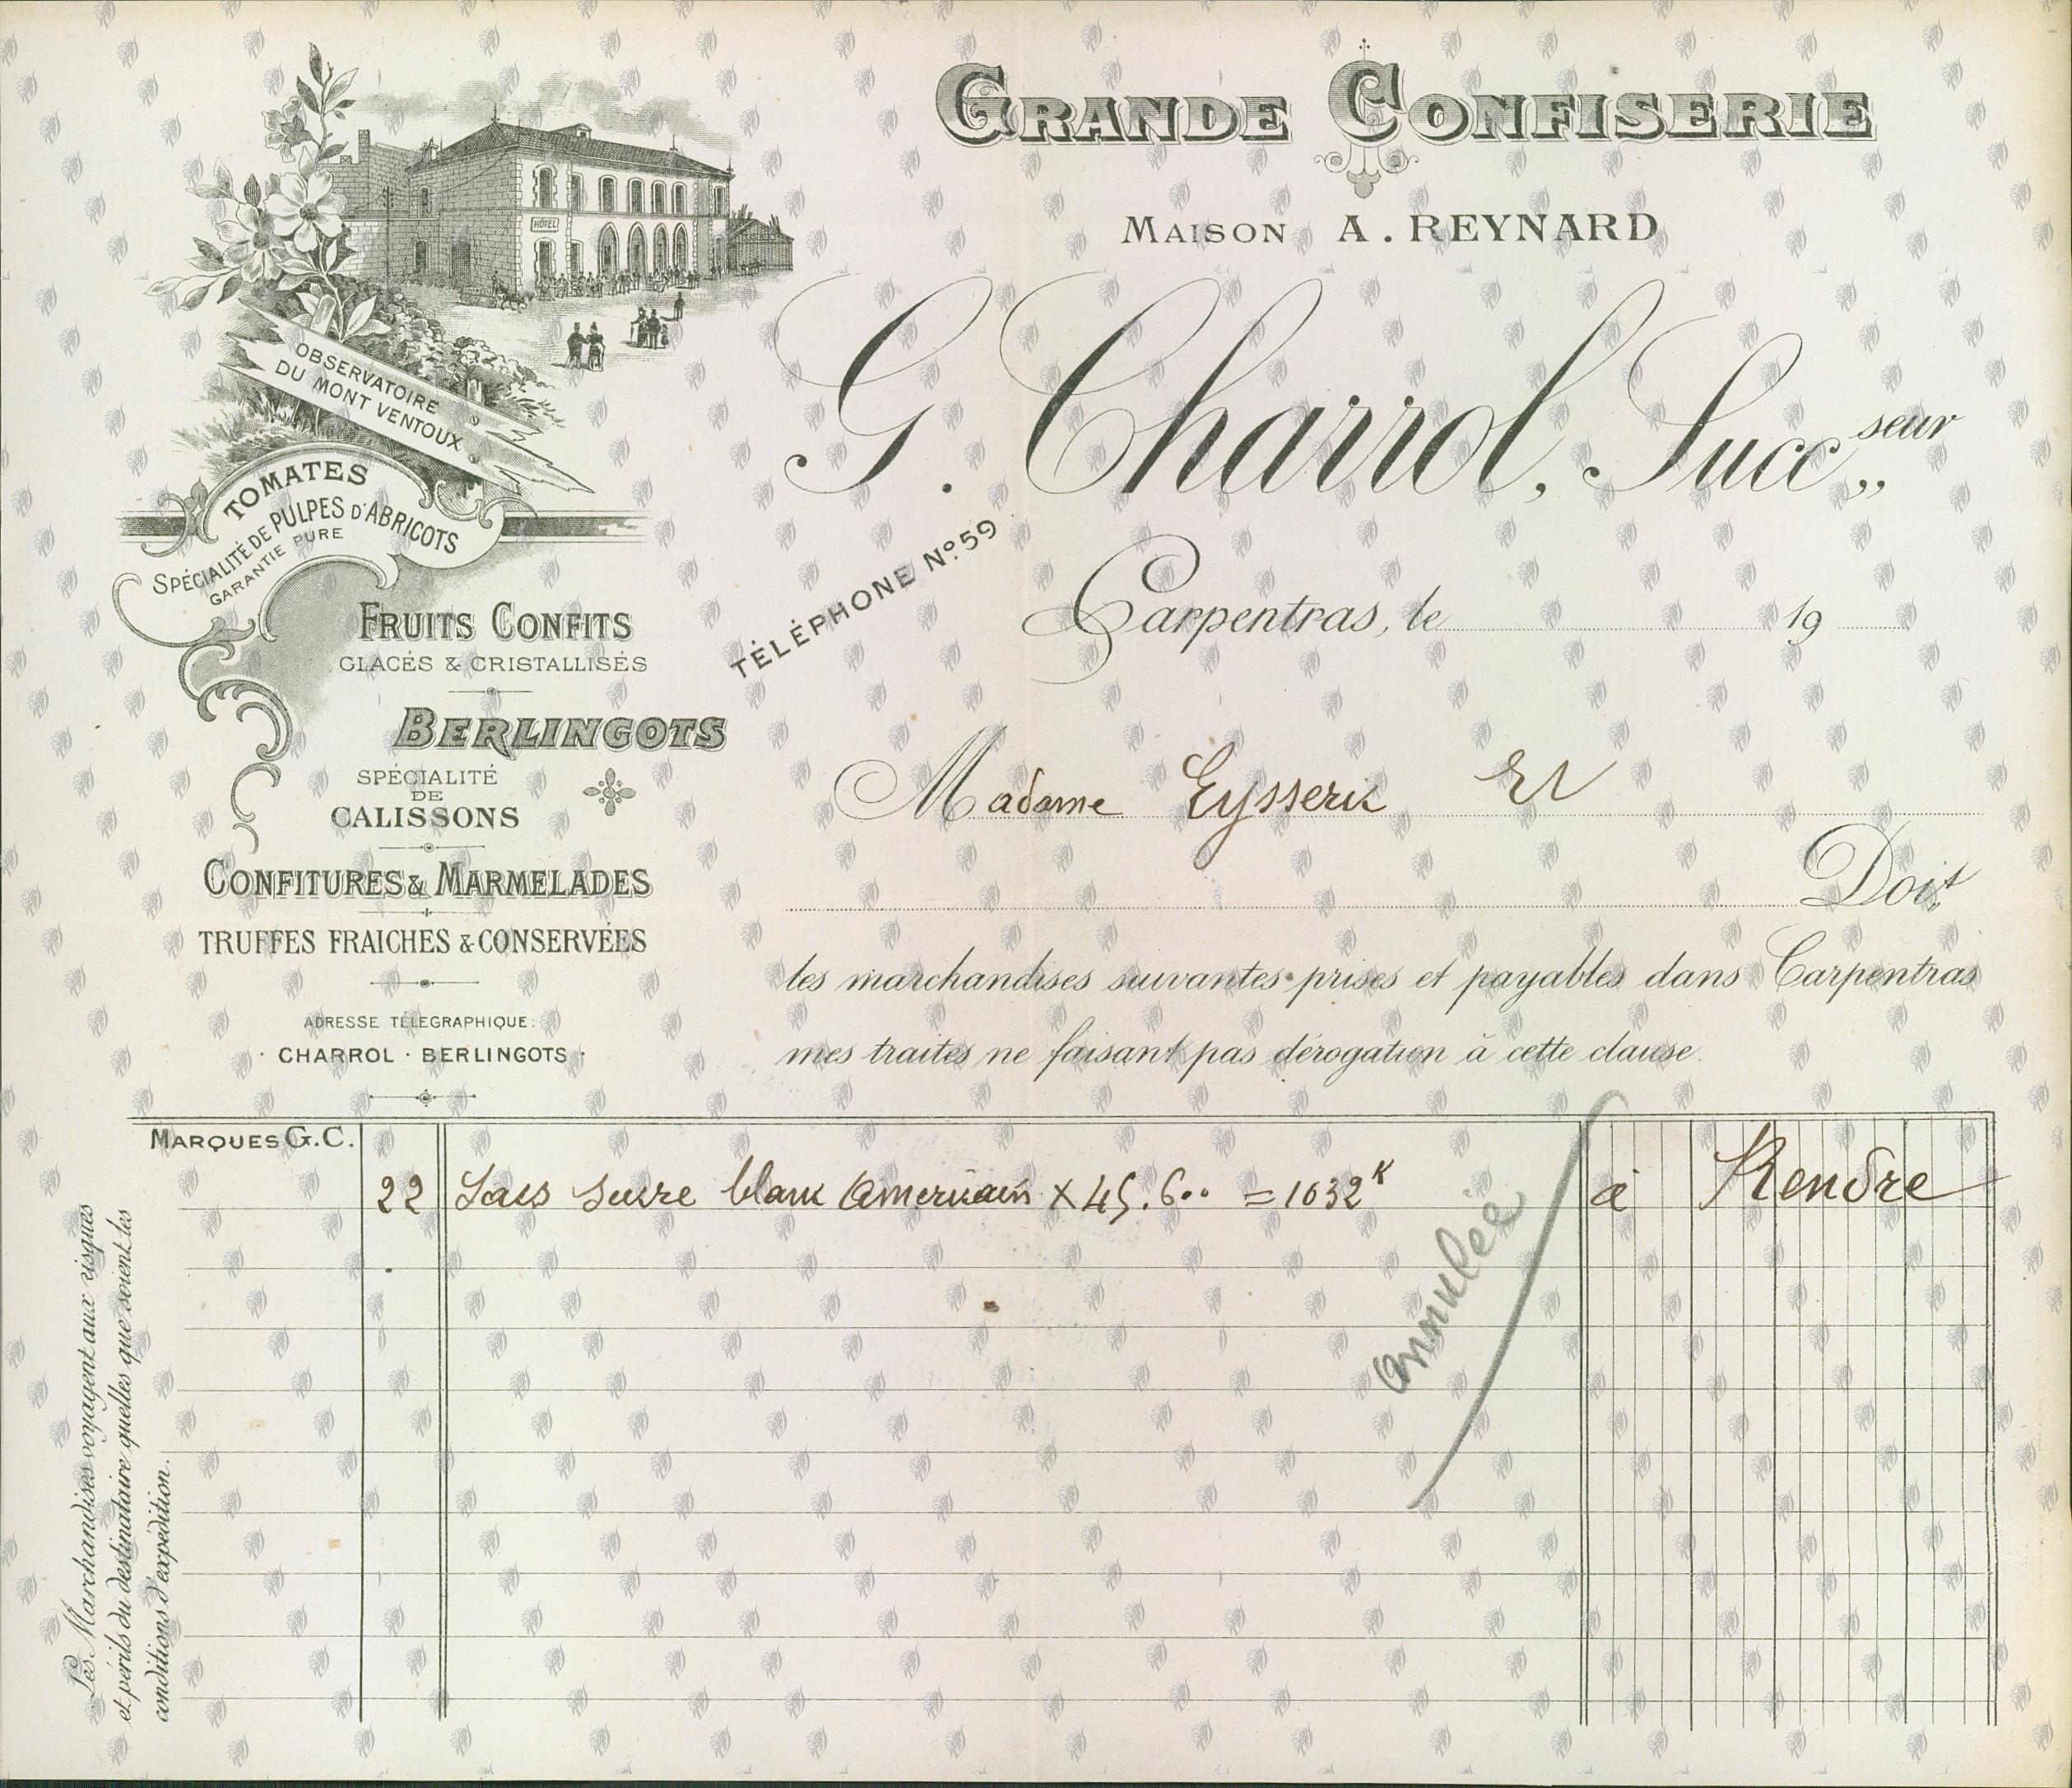 GRANDE CONFISERIE
MAISON A. REYNARD
G. Charrol, Succ,, seur
HÔTEL
OBSERVATOIRE
DU MONT VENTOUX
TOMATES
SPÉCIALITÉ DE PULPES D'ABRICOTS
GARANTIE PURE
TÉLÉPHONE N.º 59
Carpentras, le 19
FRUITS CONFITS
GLACÉS & CRISTALLISÉS
BERLINGOTS
SPÉCIALITÉ
DE
CALISSONS
CONFITURES & MARMELADES
TRUFFES FRAICHES & CONSERVÉES
ADRESSE TÉLÉGRAPHIQUE:
· CHARROL · BERLINGOTS ·
Madame Eysseric
Doit
les marchandises suivantes prises et payables dans Carpentras
mes traites ne faisant pas dérogation à cette clause.
MARQUES G.C.
22 Sacs sucre blanc Americain x 45.600 = 1032 K à Rendre
annulée
Les Marchandises voyagent aux risques
et périls du destinataire quelles que soient les
conditions d'expédition.